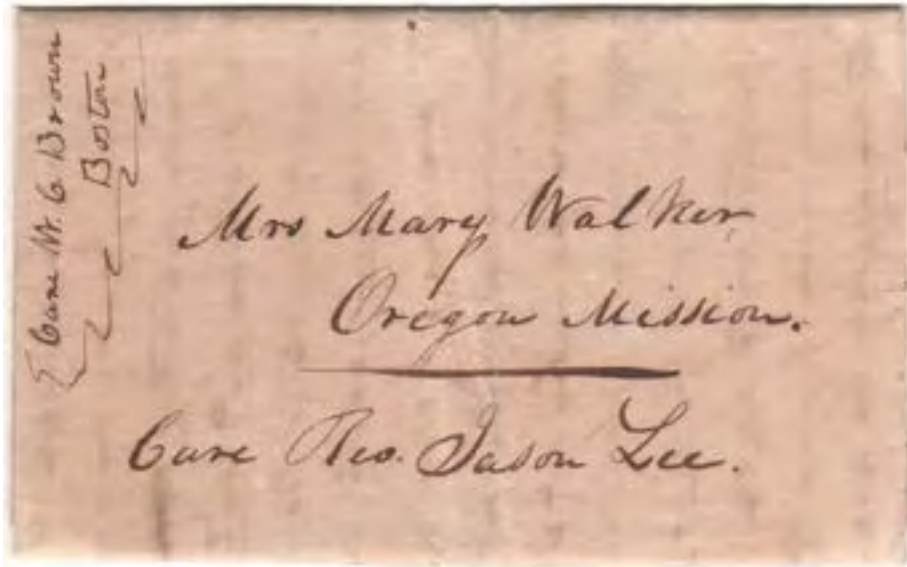 Care W. C. Brown
Boston
Mrs Mary Walker
Oregon Mission.
Care Rev. Jason Lee.